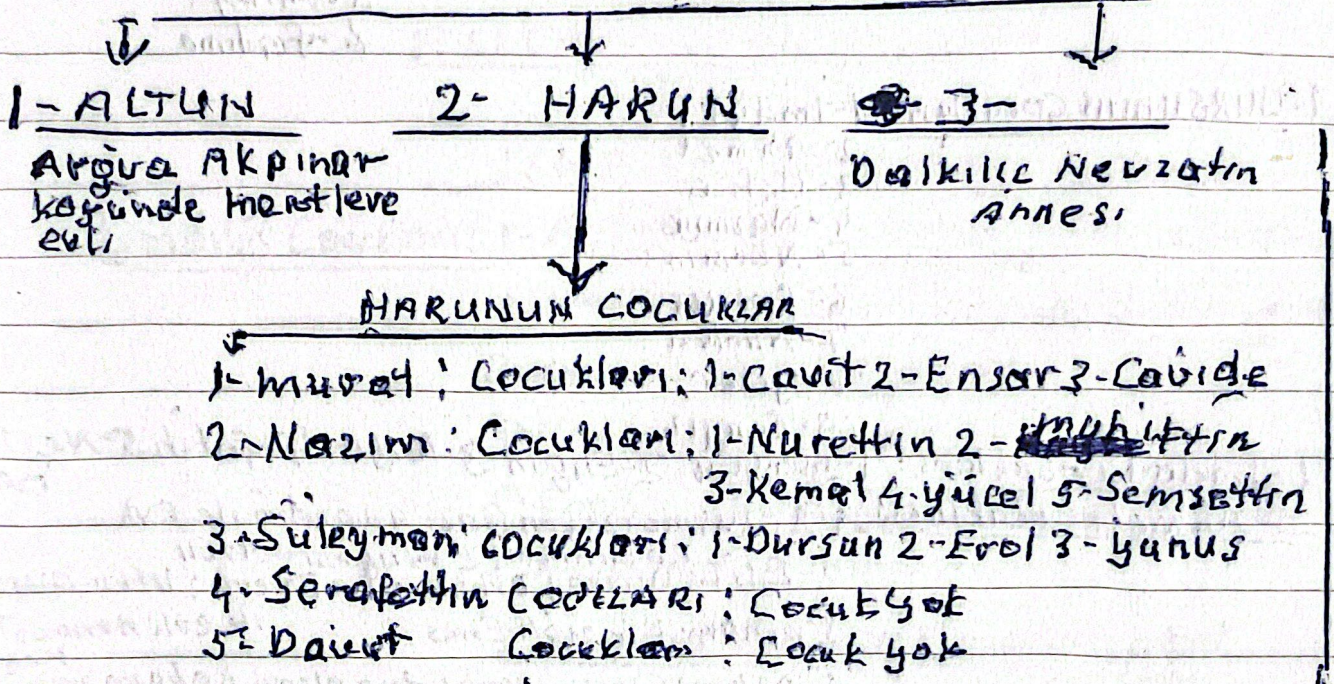 1-ALTUN 2- HARUN 3-
Argva Akpınar
köyünde
evli
Dalkilic Nevzatın
Annesi
HARUNUN COCUKLAR
1-Murat: Cocukları: 1-Cavit 2-Ensar 3-Cavide
2-Nazım: Cocukları: 1-Nurettin 2-muhittin
3-Kemal 4-yücel 5-Semsettin
3-Süleyman: cocukları: 1-Dursun 2-Erol 3-yunus
4-Serafettin : Cocuk yok
5-Davut Cocukları: Cocuk yok